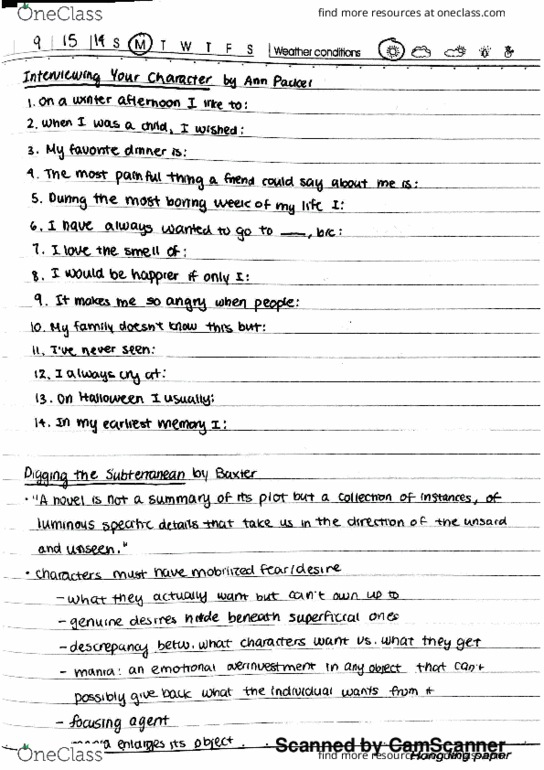 OneClass
find more resources at oneclass.com
9 | 15 | 14 S M T W T F S Weather conditions
Interviewing Your Character by Ann Packer
1. On a winter afternoon I like to:
2. When I was a child, I wished:
3. My favorite dinner is:
4. The most painful thing a friend could say about me is:
5. During the most boring week of my life I:
6. I have always wanted to go to ___, b/c:
7. I love the smell of:
8. I would be happier if only I:
9. It makes me so angry when people:
10. My family doesn't know this but:
11. I've never seen:
12. I always cry at:
13. On Halloween I usually:
14. In my earliest memory I:
Digging the Subterranean by Baxter
• "A novel is not a summary of its plot but a collection of instances, of
luminous specific details that take us in the direction of the unsaid
and unseen."
• characters must have mobilized fear/desire
- what they actually want but can't own up to
- genuine desires hidde beneath superficial ones
- descrepancy betw. what characters want vs. what they get
- mania: an emotional overinvestment in any object that can't
possibly give back what the individual wants from it
- focusing agent
mania enlarges its object.
Scanned by CamScanner
OneClass
find more resources at oneclass.com
Hangding paper